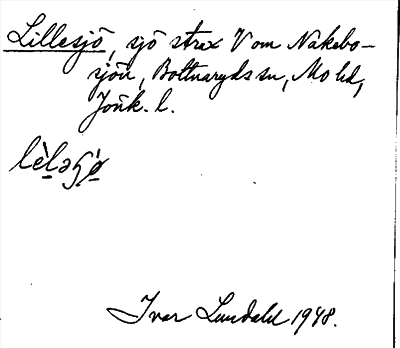 Lillesjö, sjö strax V om Nakebo-
sjön, Boltnaryds sn, Mo hd,
Jönk. l.
lèlaʂö
Ivar Lundahl 1948.